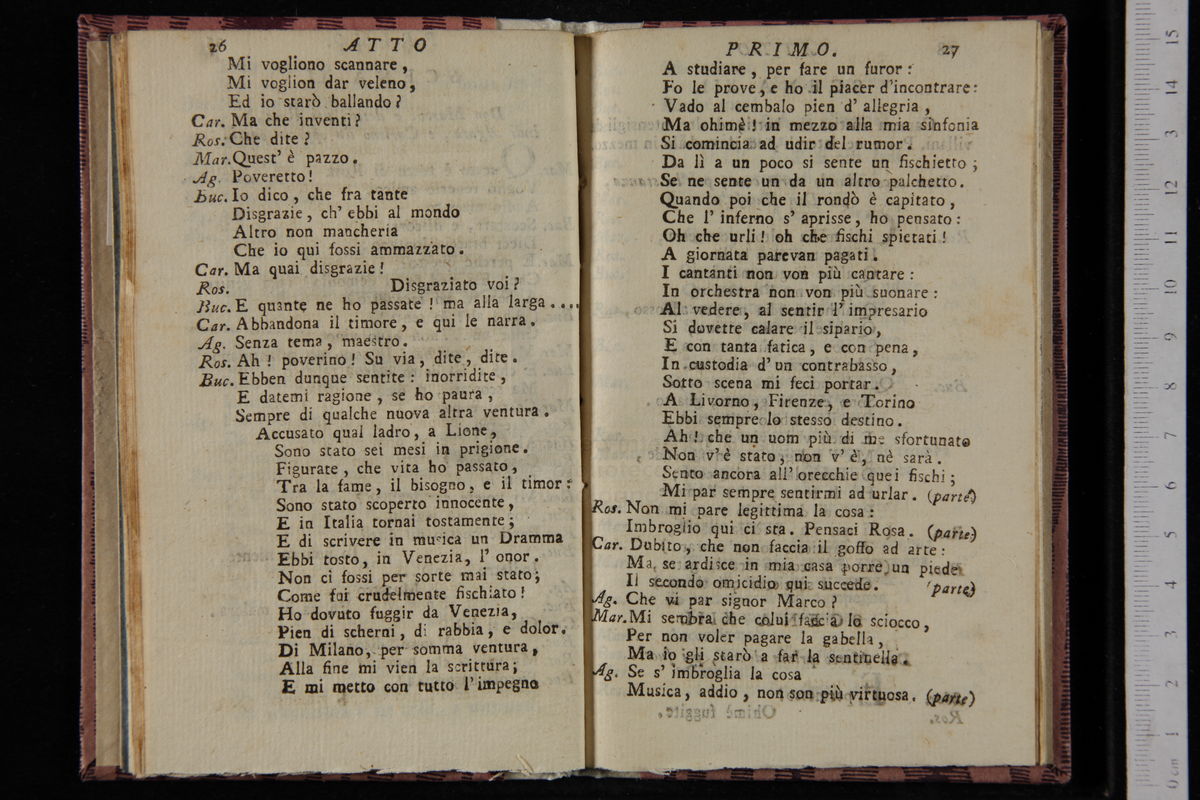 26 ATTO
Mi vogliono scannare,
Mi voglion dar veleno,
Ed io starò ballando?
Car. Ma che inventi?
Ros. Che dite?
Mar. Quest' è pazzo.
Ag. Poveretto!
Buc. Io dico, che fra tante
Disgrazie, ch' ebbi al mondo
Altro non mancheria
Che io qui fossi ammazzato.
Car. Ma quai disgrazie!
Ros. Disgraziato voi?
Buc. E quante ne ho passate! ma alla larga....
Car. Abbandona il timore, e qui le narra.
Ag. Senza tema, maestro.
Ros. Ah! poverino! Su via, dite, dite.
Buc. Ebben dunque sentite: inorridite,
E datemi ragione, se ho paura,
Sempre di qualche nuova altra ventura.
Accusato qual ladro, a Lione,
Sono stato sei mesi in prigione.
Figurate, che vita ho passato,
Tra la fame, il bisogno, e il timor:
Sono stato scoperto innocente,
E in Italia tornai tostamente;
E di scrivere in musica un Dramma
Ebbi tosto, in Venezia, l' onor.
Non ci fossi per sorte mai stato;
Come fui crudelmente fischiato!
Ho dovuto fuggir da Venezia,
Pien di scherni, di rabbia, e dolor.
Di Milano, per somma ventura,
Alla fine mi vien la scrittura;
E mi metto con tutto l' impegno
PRIMO. 27
A studiare, per fare un furor:
Fo le prove, e ho il piacer d'incontrare:
Vado al cembalo pien d' allegria,
Ma ohimè! in mezzo alla mia sinfonia
Si comincia ad udir del rumor.
Da lì a un poco si sente un fischietto;
Se ne sente un da un altro palchetto.
Quando poi che il rondò è capitato,
Che l' inferno s' aprisse, ho pensato:
Oh che urli! oh che fischi spietati!
A giornata parevan pagati.
I cantanti non von più cantare:
In orchestra non von più suonare:
Al vedere, al sentir l' impresario
Si dovette calare il sipario,
E con tanta fatica, e con pena,
In custodia d' un contrabasso,
Sotto scena mi feci portar.
A Livorno, Firenze, e Torino
Ebbi sempre lo stesso destino.
Ah! che un uom più di me sfortunato
Non v' è stato, non v' è, nè sarà.
Sento ancora all' orecchie quei fischi;
Mi par sempre sentirmi ad urlar. (parte)
Ros. Non mi pare legittima la cosa:
Imbroglio qui ci sta. Pensaci Rosa. (parte)
Car. Dubito, che non faccia il goffo ad arte:
Ma se ardisce in mia casa porre un piede
Il secondo omicidio qui succede. (parte)
Ag. Che vi par signor Marco?
Mar. Mi sembra che colui faccia lo sciocco,
Per non voler pagare la gabella,
Ma io gli starò a far la sentinella.
Ag. Se s' imbroglia la cosa
Musica, addio, non son più virtuosa. (parte)
Ros.